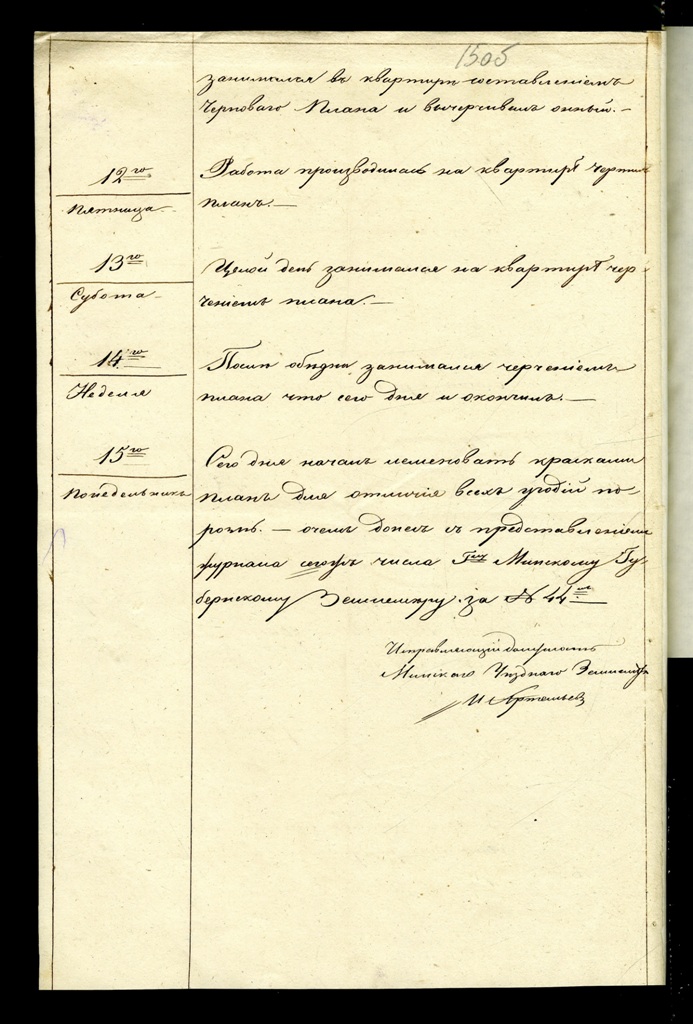 1505
занимался въ квартирѣ составленіемъ
Черноваго Плана и вычерчивалъ онный. —
12го
Пятница
Работа производилась на квартирѣ чертил
планъ. —
13го
Субота
Целой день занимался на квартирѣ чер-
ченіемъ плана. —
14го
Неделя
Послѣ обѣдни занимался черченіемъ
плана что сего дня и окончилъ. —
15го
Понедельникъ
Сего дня началъ илеменовать красками
планъ для отличія всехъ угодій по-
рознь. — очемъ донесъ съ представленіемъ
журнала сегожъ числа Гну Минскому Гу-
бернскому Землемеру за № 44м
Исправляющій должность
Минскаго Уѣзднаго Землемѣра